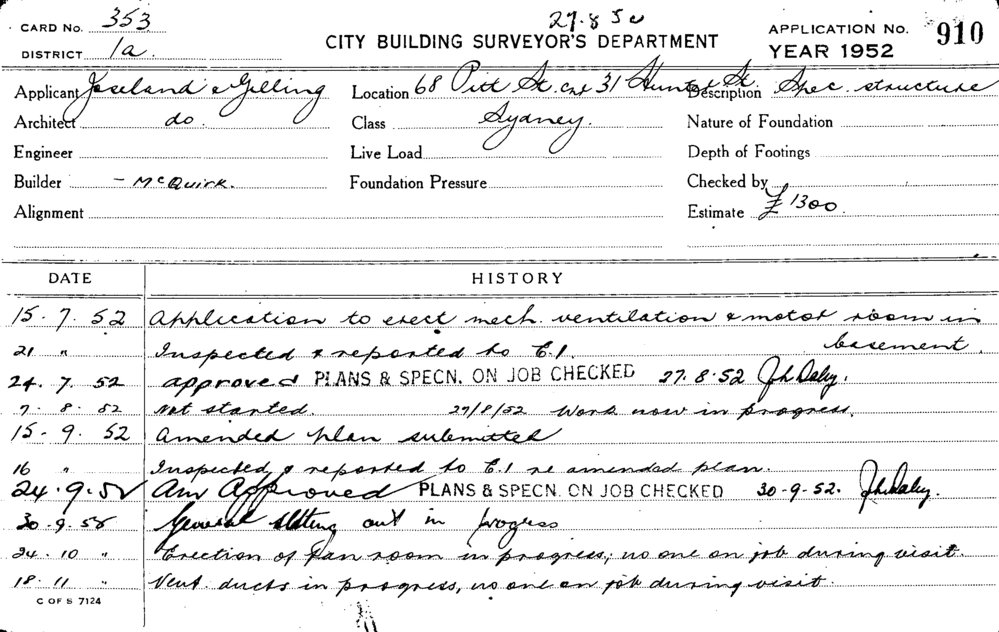 CARD No. 353
27.8.50
CITY BUILDING SURVEYOR'S DEPARTMENT
APPLICATION No. 910
DISTRICT 1a.
YEAR 1952
Applicant Joseland & Gilling Location 68 Pitt St. cnr 31 Hunter St. Description Spec. structure
Architect do. Class Sydney. Nature of Foundation
Engineer Live Load Depth of Footings
Builder - McQuirk. Foundation Pressure Checked by
Alignment Estimate £1300.
DATE HISTORY
15. 7. 52 Application to erect mech. ventilation & motor room in
basement.
21 " Inspected & reported to C.I.
24. 7. 52 approved PLANS & SPECN. ON JOB CHECKED 27.8.52 Jh Daley.
7. 8. 52 Not started. 27/8/52 Work now in progress.
15. 9. 52 Amended plan submitted
16 " Inspected & reported to C.I re amended plan.
24.9.52 Am Approved PLANS & SPECN. ON JOB CHECKED 30-9-52. Jh Daley.
30-9-52 General setting out in progress
24. 10 " Erection of fan room in progress; no one on job during visit.
18. 11 " Vent. ducts in progress, no one on job during visit.
C OF S 7124